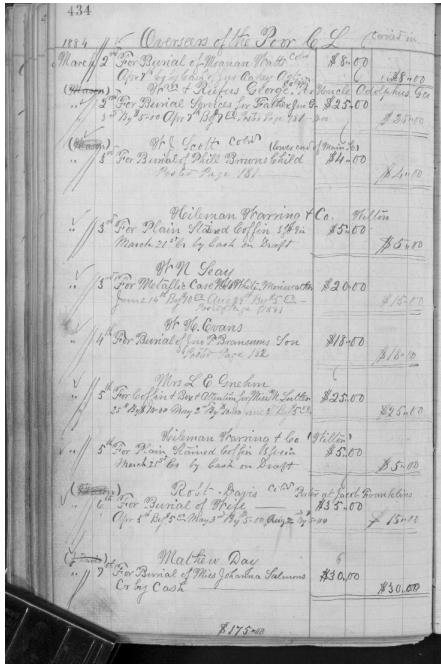 434
1884 Overseers of the Poor C L
March 2nd For Burial of Meanan Watts Cold $8.00
Apr 7th by Cash $8.00
Wm & Rufus George Uncle Adolphus Geo
2nd For Burial Services for Father $25.00
By $5.00 Apr 7th By Posted Page 151 $25.00
W. J. Scott Cold (lower end of Main St)
3rd For Burial of Phill Browns Child $4.00
Posted Page 151 $4.00
Heileman Warring & Co. Wilton
3rd For Plain Stained Coffin $5.00
March 21st Cr by Cash on Draft $5.00
W. N. Seay
3rd For Metallic Case $20.00
June 14th By 10.00 Aug By 5.00 $15.00
Posted Page 151
W. H. Evans
4th For Burial of Jno P Bransums Son $18.00
Posted Page 152 $18.00
Mrs L. E. Gnehm
5th For Coffin & Box & Attention for $25.00
25th By $10.00 May 2nd By June 2nd By $25.00
Heileman Warring & Co (Wilton)
5th For Plain Stained Coffin $5.00
March 21st Cr by Cash on Draft $5.00
Robt Davis Cold at Jacob Franklins
6th For Burial of Wife $35.00
Apr 5th By 5.00 May 3rd By 5.00 Aug 2 By 5.00 15.00
Mathew Day
7th For Burial of Miss Johanna Salmons $30.00
Cr by Cash $30.00
$175.00